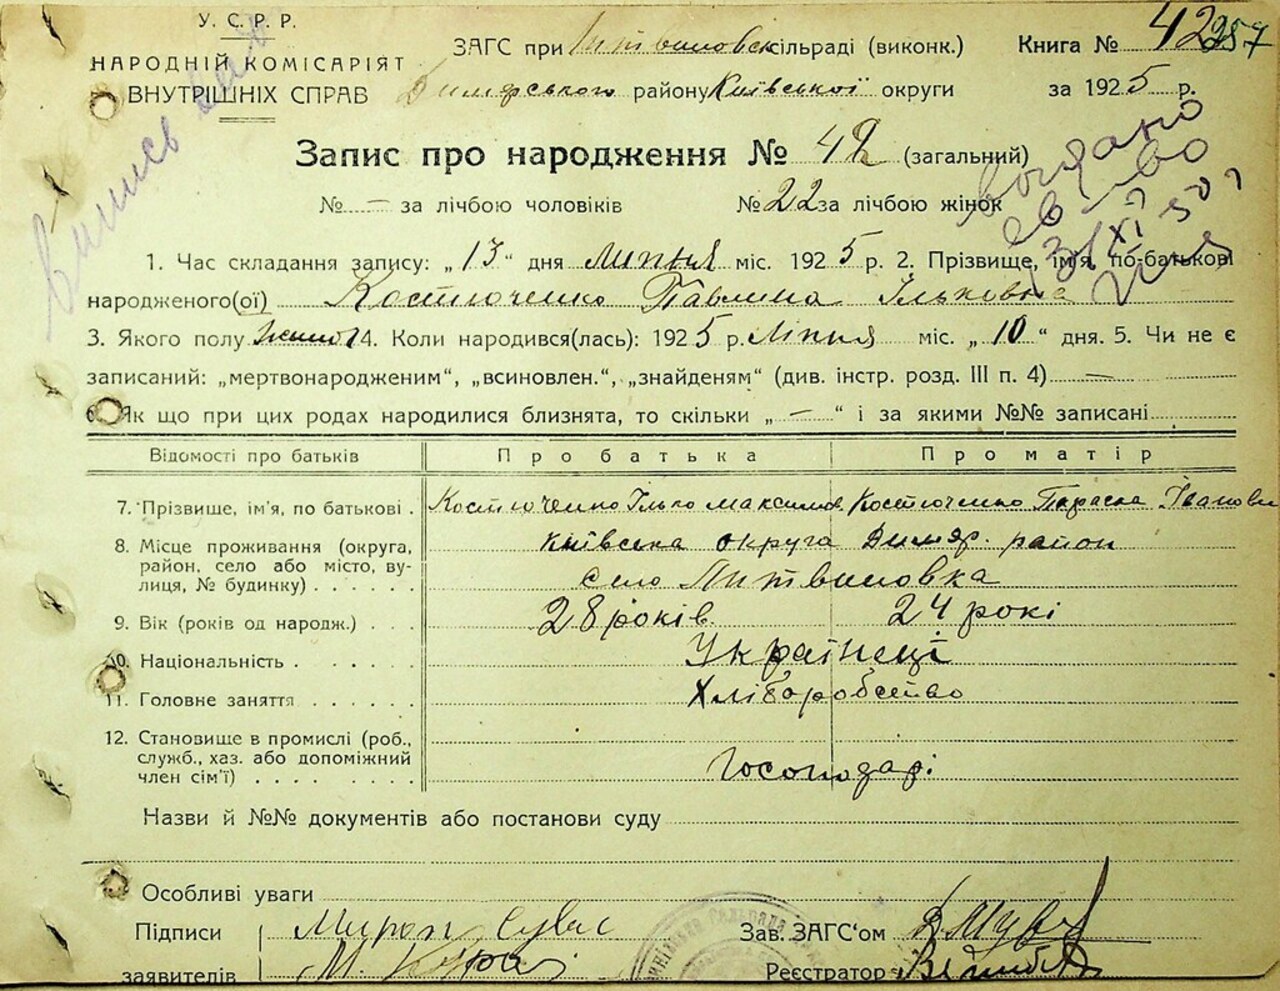 У. С. Р. Р.
НАРОДНІЙ КОМІСАРІЯТ
ВНУТРІШНІХ СПРАВ
ЗАГС при Литвиновск сільраді (виконк.)
Димерського району Київської округи
Книга № 42 257
за 1925 р.
Запис про народження № 42 (загальний)
№ — за лічбою чоловіків № 22 за лічбою жінок
1. Час складання запису: „13“ дня липня міс. 1925 р. 2. Прізвище, ім'я, по-батькові
народженого(ої) Костюченко Павлина Ільковна
3. Якого полу жіноч 4. Коли народився(лась): 1925 р. Липня міс. „10“ дня. 5. Чи не є
записаний: „мертвонародженим“, „всиновлен.“, „знайденям“ (див. інстр. розд. III п. 4) —
6. Як що при цих родах народилися близнята, то скільки „—“ і за якими №№ записані
Відомості про батьків Про батька Про матір
7. Прізвище, ім'я, по батькові . Костюченко Ілько Максимов. Костюченко Параска Івановн
8. Місце проживання (округа, Київська округа Димер. район
район, село або місто, ву-
лиця, № будинку) . . . . . . село Литвиновка
9. Вік (років од народж.) . . . 28 років. 24 рокі
10. Національність . . . . . . Українеці
11. Головне заняття . . . . . . Хліборобство
12. Становище в промислі (роб.,
служб., хаз. або допоміжний
член сім'ї) . . . . . . . . Госоподарі
Назви й №№ документів або постанови суду
Особливі уваги
Підписи Мирон
Зав. ЗАГС'ом
заявителів М.
Реєстратор
Випись
видано
св-во
31/XI